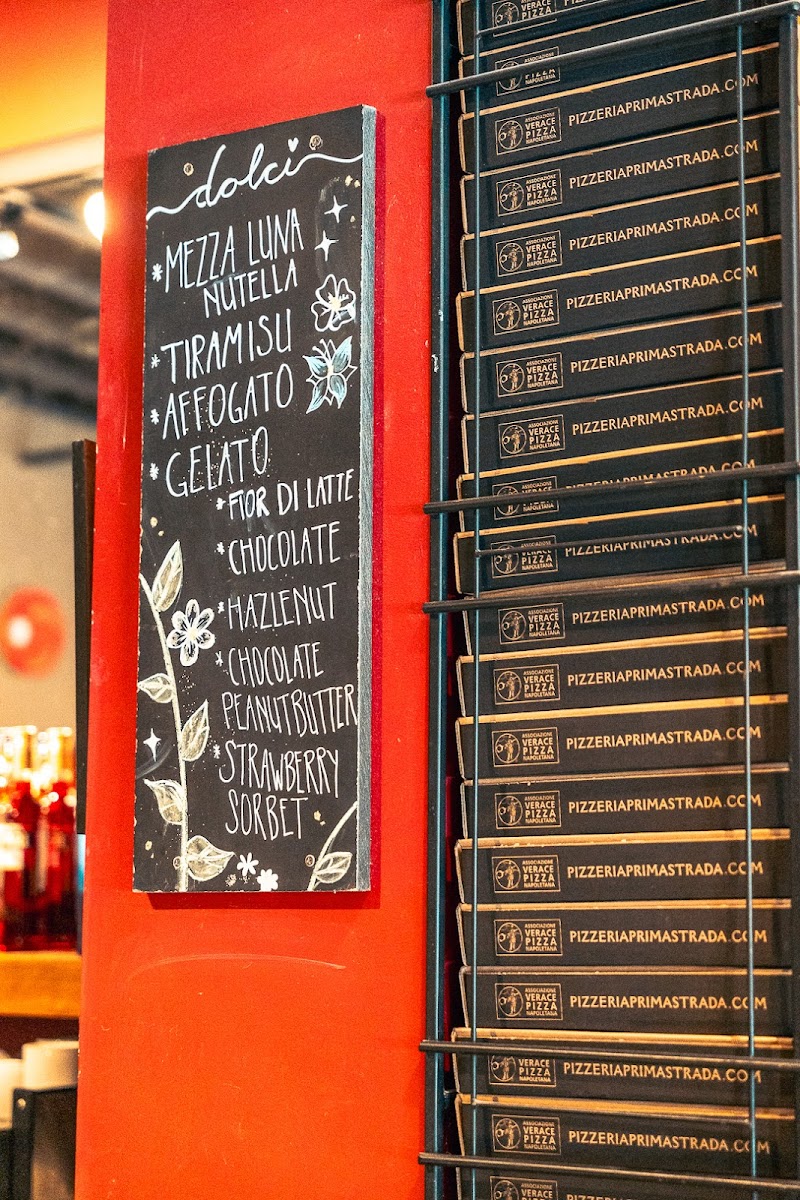 dolci
* MEZZA LUNA
NUTELLA
* TIRAMISU
* AFFOGATO
* GELATO
* FIOR DI LATTE
* CHOCOLATE
* HAZLENUT
* CHOCOLATE
PEANUTBUTTER
* STRAWBERRY
SORBET
VERACE
PIZZA
NAPOLETANA
ASSOCIAZIONE
PIZZA
ASSOCIAZIONE
VERACE
PIZZA
NAPOLETANA
PIZZERIAPRIMASTRADA.COM
ASSOCIAZIONE
VERACE
PIZZA
NAPOLETANA
PIZZERIAPRIMASTRADA.COM
ASSOCIAZIONE
VERACE
PIZZA
NAPOLETANA
PIZZERIAPRIMASTRADA.COM
ASSOCIAZIONE
VERACE
PIZZA
NAPOLETANA
PIZZERIAPRIMASTRADA.COM
ASSOCIAZIONE
VERACE
PIZZA
NAPOLETANA
PIZZERIAPRIMASTRADA.COM
ASSOCIAZIONE
VERACE
PIZZA
NAPOLETANA
PIZZERIAPRIMASTRADA.COM
ASSOCIAZIONE
VERACE
NAPOLETANA
PIZZERIAPRIMASTRADA.COM
VERACE
PIZZA
NAPOLETANA
PIZZERIAPRIMASTRADA.COM
ASSOCIAZIONE
VERACE
PIZZA
NAPOLETANA
PIZZERIAPRIMASTRADA.COM
ASSOCIAZIONE
VERACE
PIZZA
NAPOLETANA
PIZZERIAPRIMASTRADA.COM
ASSOCIAZIONE
VERACE
PIZZA
NAPOLETANA
PIZZERIAPRIMASTRADA.COM
ASSOCIAZIONE
VERACE
PIZZA
NAPOLETANA
PIZZERIAPRIMASTRADA.COM
ASSOCIAZIONE
VERACE
PIZZA
NAPOLETANA
PIZZERIAPRIMASTRADA.COM
ASSOCIAZIONE
VERACE
PIZZA
NAPOLETANA
PIZZERIAPRIMASTRADA.COM
ASSOCIAZIONE
VERACE
PIZZA
NAPOLETANA
PIZZERIAPRIMASTRADA.COM
VERACE
PIZZA
NAPOLETANA
PIZZERIAPRIMASTRADA.COM
ASSOCIAZIONE
VERACE
PIZZA
NAPOLETANA
PIZZERIAPRIMASTRADA.COM
ASSOCIAZIONE
VERACE